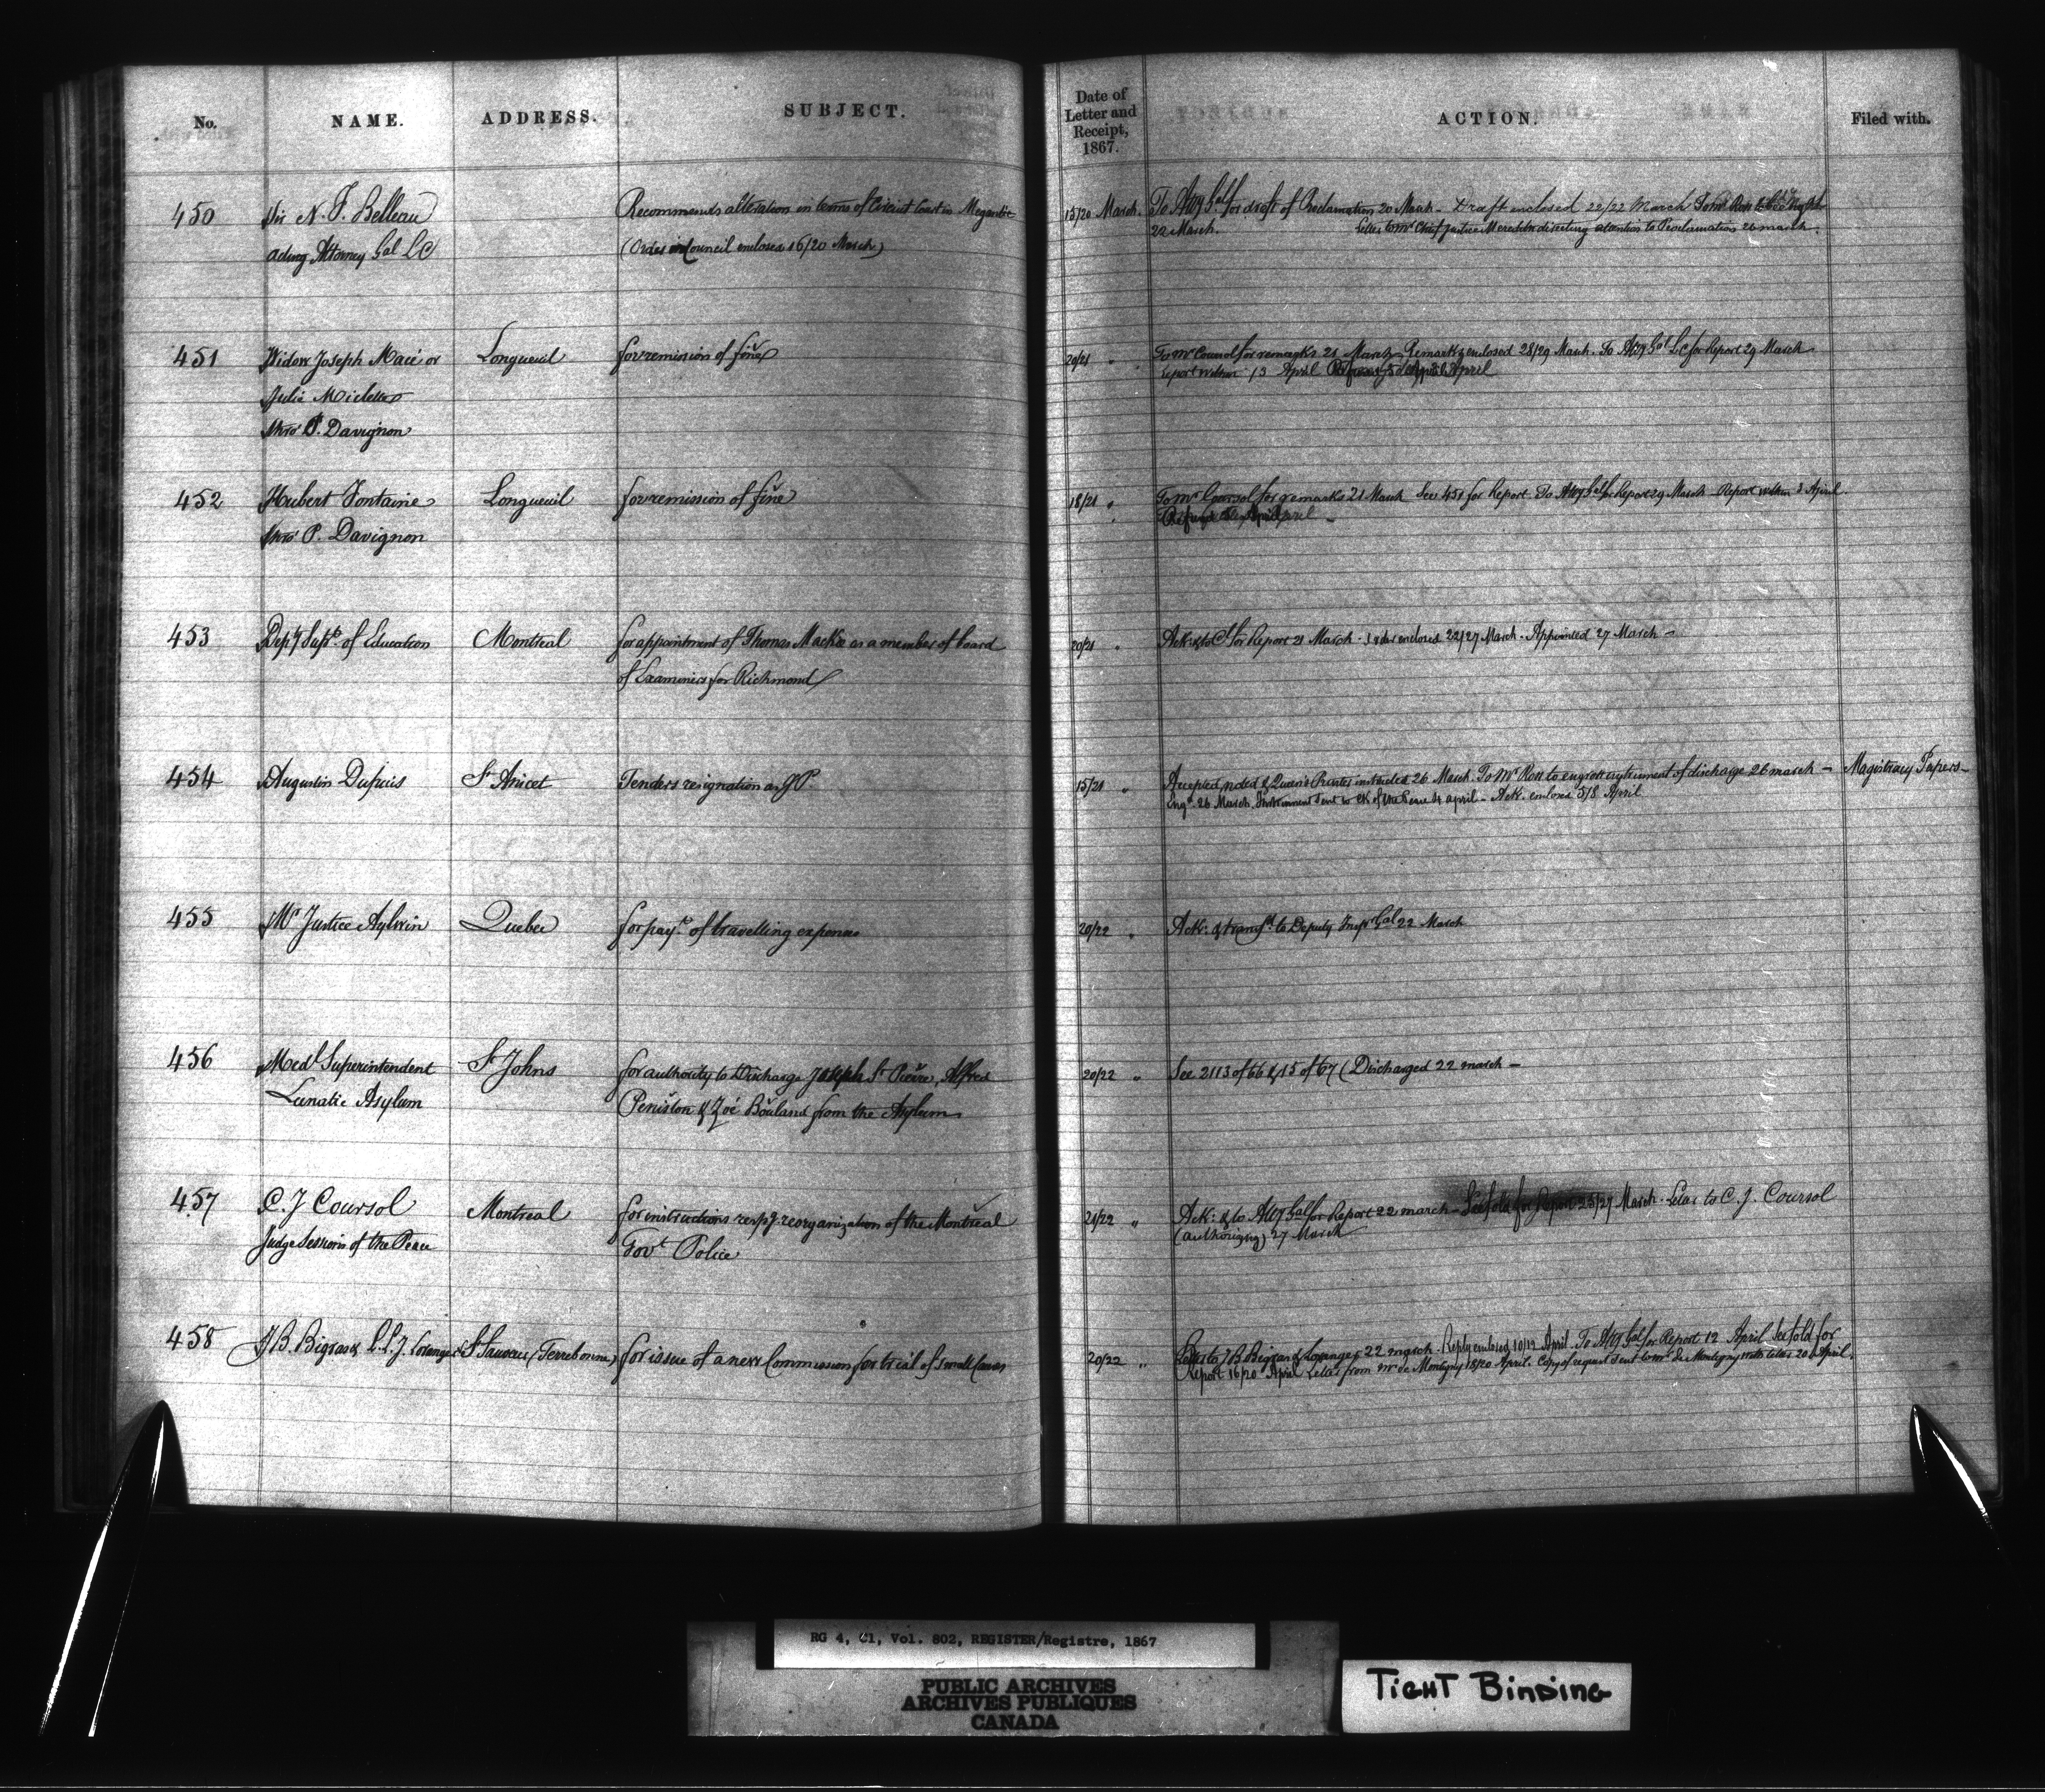 No.
NAME.
ADDRESS.
SUBJECT.
Date of
Letter and
Receipt,
1867.
ACTION.
Filed with.
450
Sir N. F. Belleau
acting Attorney Gal LC
Recommends alteration in terms of Circuit Court in Megantic
(Order in Council enclosed 16/20 March)
15/20 March.
To Atty Gal for draft of Proclamation 20 March - Draft enclosed 22/22 March
22 March. Letter to Mr Chief Justice Meredith directing attention to Proclamation 26 march.
451
Widow Joseph Macé or
Julie
thro' P. Davignon
Longueuil
for remission of fine
20/21 "
To Mr Coursol for remarks 21 March. Remarks enclosed 28/29 March. To Atty Gal LC for Report 29 March
report within 13 April April
452
Hubert Fontaine
thro' P. Davignon
Longueuil
for remission of fine
18/21 "
To Mr Coursol for remarks 21 March See 451 for Report To Atty Gal for Report 29 March Report within 3 April.
453
Depy Supt of Education
Montreal
for appointment of Thomas Mackie as a member of board
of Examiners for Richmond
20/21 "
Ack: & to for Report 21 March. enclosed 22/27 March. Appointed 27 March -
454
Augustin Dupuis
St Anicet
Tenders resignation as J.P.
15/21 "
Accepted, noted & Queen's Printer instructed 26 March. To Mr Ross to engross instrument of discharge 26 march -
Engd 26 March. Instrument sent to Clk of the Peace 4 april - Ack. enclosed 5/8 April
Magistracy Papers -
455
Mr Justice Aylwin
Quebec
for payt of travelling expenses
20/22 "
Ack: & transfd to Deputy Inspr Gal 22 March
456
Medl Superintendent
Lunatic Asylum
St Johns
for authority to Discharge Joseph St Pierre, Alfred
Peniston & Zoé Bouland from the Asylum
20/22 "
See 2113 of 66 & 15 of 67 (Discharged 22 march -
457
C. J Coursol
Judge Sessions of the Peace
Montreal
for instructions respg reorganization of the Montreal
Govt Police
21/22 "
Ack: & to Atty Gal for Report 22 march - See fold for Report 25/27 March. Letter to C. J. Coursol
(authorizing) 27 March
458
J B. Bigras & L. L. J. Loranger
St Sauveur (Terrebonne)
for issue of a new Commission for trial of small Causes
20/22 "
Letter to J B Bigras & Loranger 22 march. Reply enclosed 10/12 April. To Atty Gal for Report 12 April See fold for
Report 16/20 April Letter from Mr de Montigny 18/20 April. Copy of request sent to Mr de Montigny with letter 20 April.
RG 4, C1, Vol. 802, REGISTER/Registre, 1867
PUBLIC ARCHIVES
ARCHIVES PUBLIQUES
CANADA
TIGHT BINDING